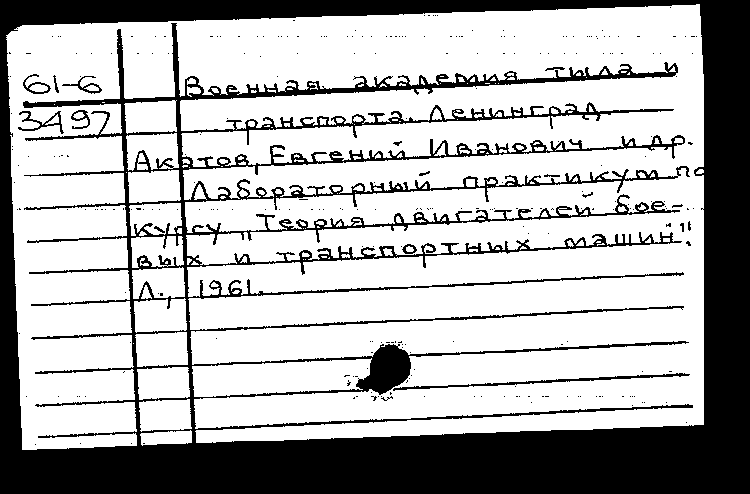 61-6 Военная академия тыла и
3497 транспорта. Ленинград
Акатов, Евгений Иванович и др.
Лабораторный практикум по
курсу „Теория двигателей бое-
вых и транспортных машин".
Л., 1961.